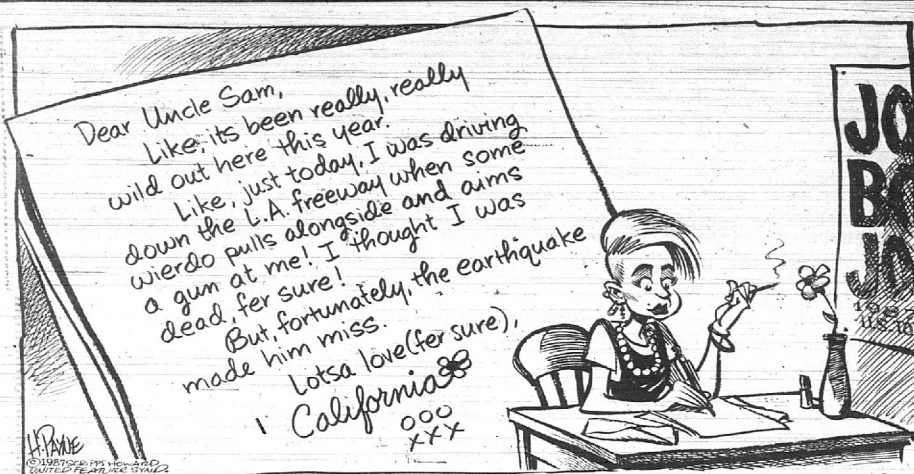 Dear Uncle Sam,
Like, its been really, really
wild out here this year.
Like, just today, I was driving
down the L.A. freeway when some
wierdo pulls alongside and aims
a gun at me! I thought I was
dead, fer sure!
But, fortunately, the earthquake
made him miss.
Lotsa love (fer sure),
California
OOO
XXX
JO
BO
JO
H. PAYNE
©1987 SCRIPPS HOWARD
UNITED FEATURE SYND.